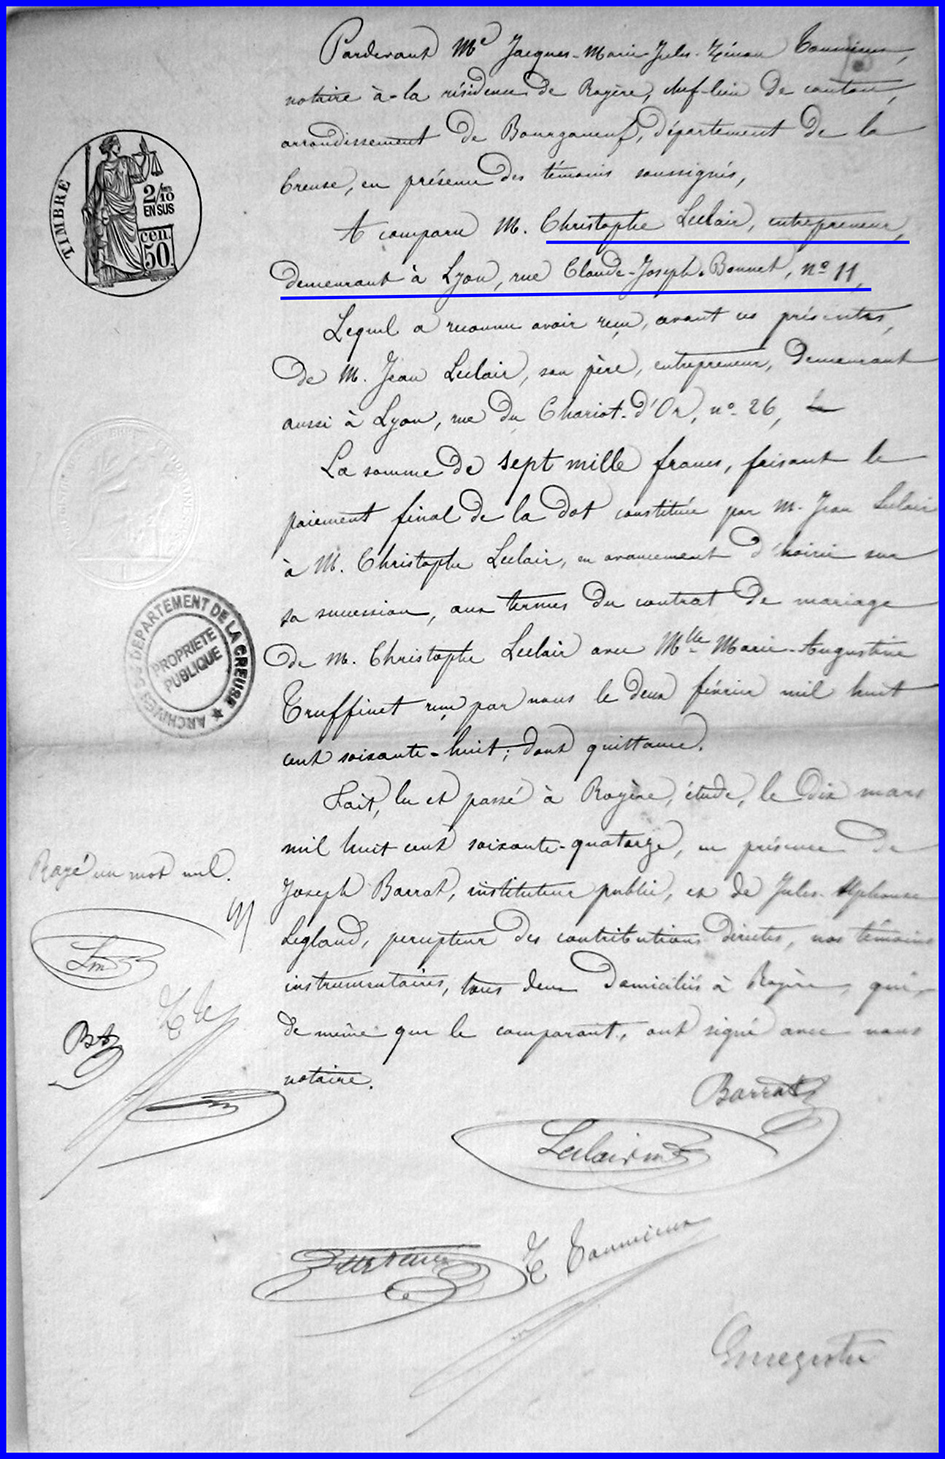 Pardevant Me Jacques-Marie-Jules-Zénon Toumieux,
notaire à la résidence de Royère, chef-lieu de canton,
arrondissement de Bourganeuf, département de la
Creuse, en présence des témoins soussignés,
A comparu M. Christophe Leclair, entrepreneur,
demeurant à Lyon, rue Claude-Joseph-Bonnet, no 11,
Lequel a reconnu avoir reçu, avant ces présentes,
de M. Jean Leclair, son père, entrepreneur, demeurant
aussi à Lyon, rue du Chariot-d'Or, no 26,
La somme de sept mille francs, faisant le
paiement final de la dot constituée par M. Jean Leclair
à M. Christophe Leclair, en avancement d'hoirie sur
sa succession, aux termes du contrat de mariage
de M. Christophe Leclair avec Mlle Marie-Augustine
Truffinet reçu par nous le deux février mil huit
cent soixante-huit; dont quittance.
Fait, lu et passé à Royère, étude, le dix mars
mil huit cent soixante-quatorze, en présence de
Joseph Barrat, instituteur public, et de Jules-Alphonse
Legland, percepteur des contributions directes, nos témoins
instrumentaires, tous deux domiciliés à Royère, qui,
de même que le comparant, ont signé avec nous
notaire.
Rayé un mot nul.
Barrat
Leclair
Toumieux
Enregistré
TIMBRE
2/10
EN SUS
cen.
50.
ARCHIVES DU DEPARTEMENT DE LA CREUSE
PROPRIETE
PUBLIQUE